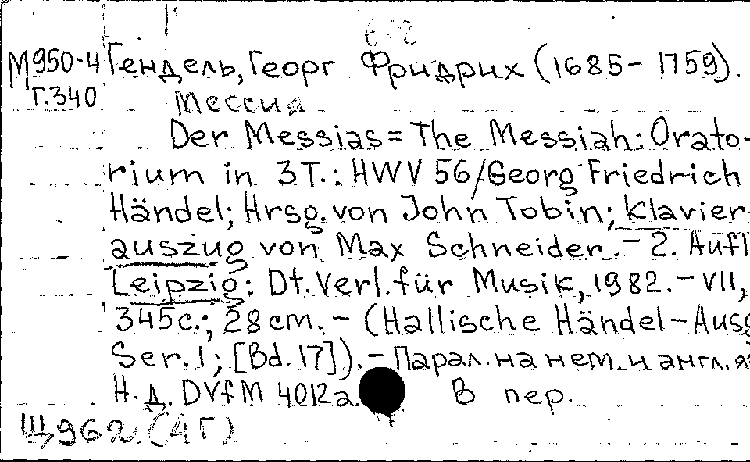 М950-4 Гендель, Георг Фридрих (1685-1759).
Г.340 Мессия
Der Messias = The Messiah: Orato-
rium in 3T.: HWV 56/Georg Friedrich
Händel; Hrsg. von John Tobin; Klavier-
auszug von Max Schneider. - 2. Aufl
Leipzig: Dt. Verl. für Musik, 1982. - VII,
345с.; 28cm. - (Hallische Händel-Ausg
Ser. 1; [Bd. 17]). - Парал. на нем. и англ. я
Н.д. DVfM 4012a. В пер.
Щ962.(4Г)